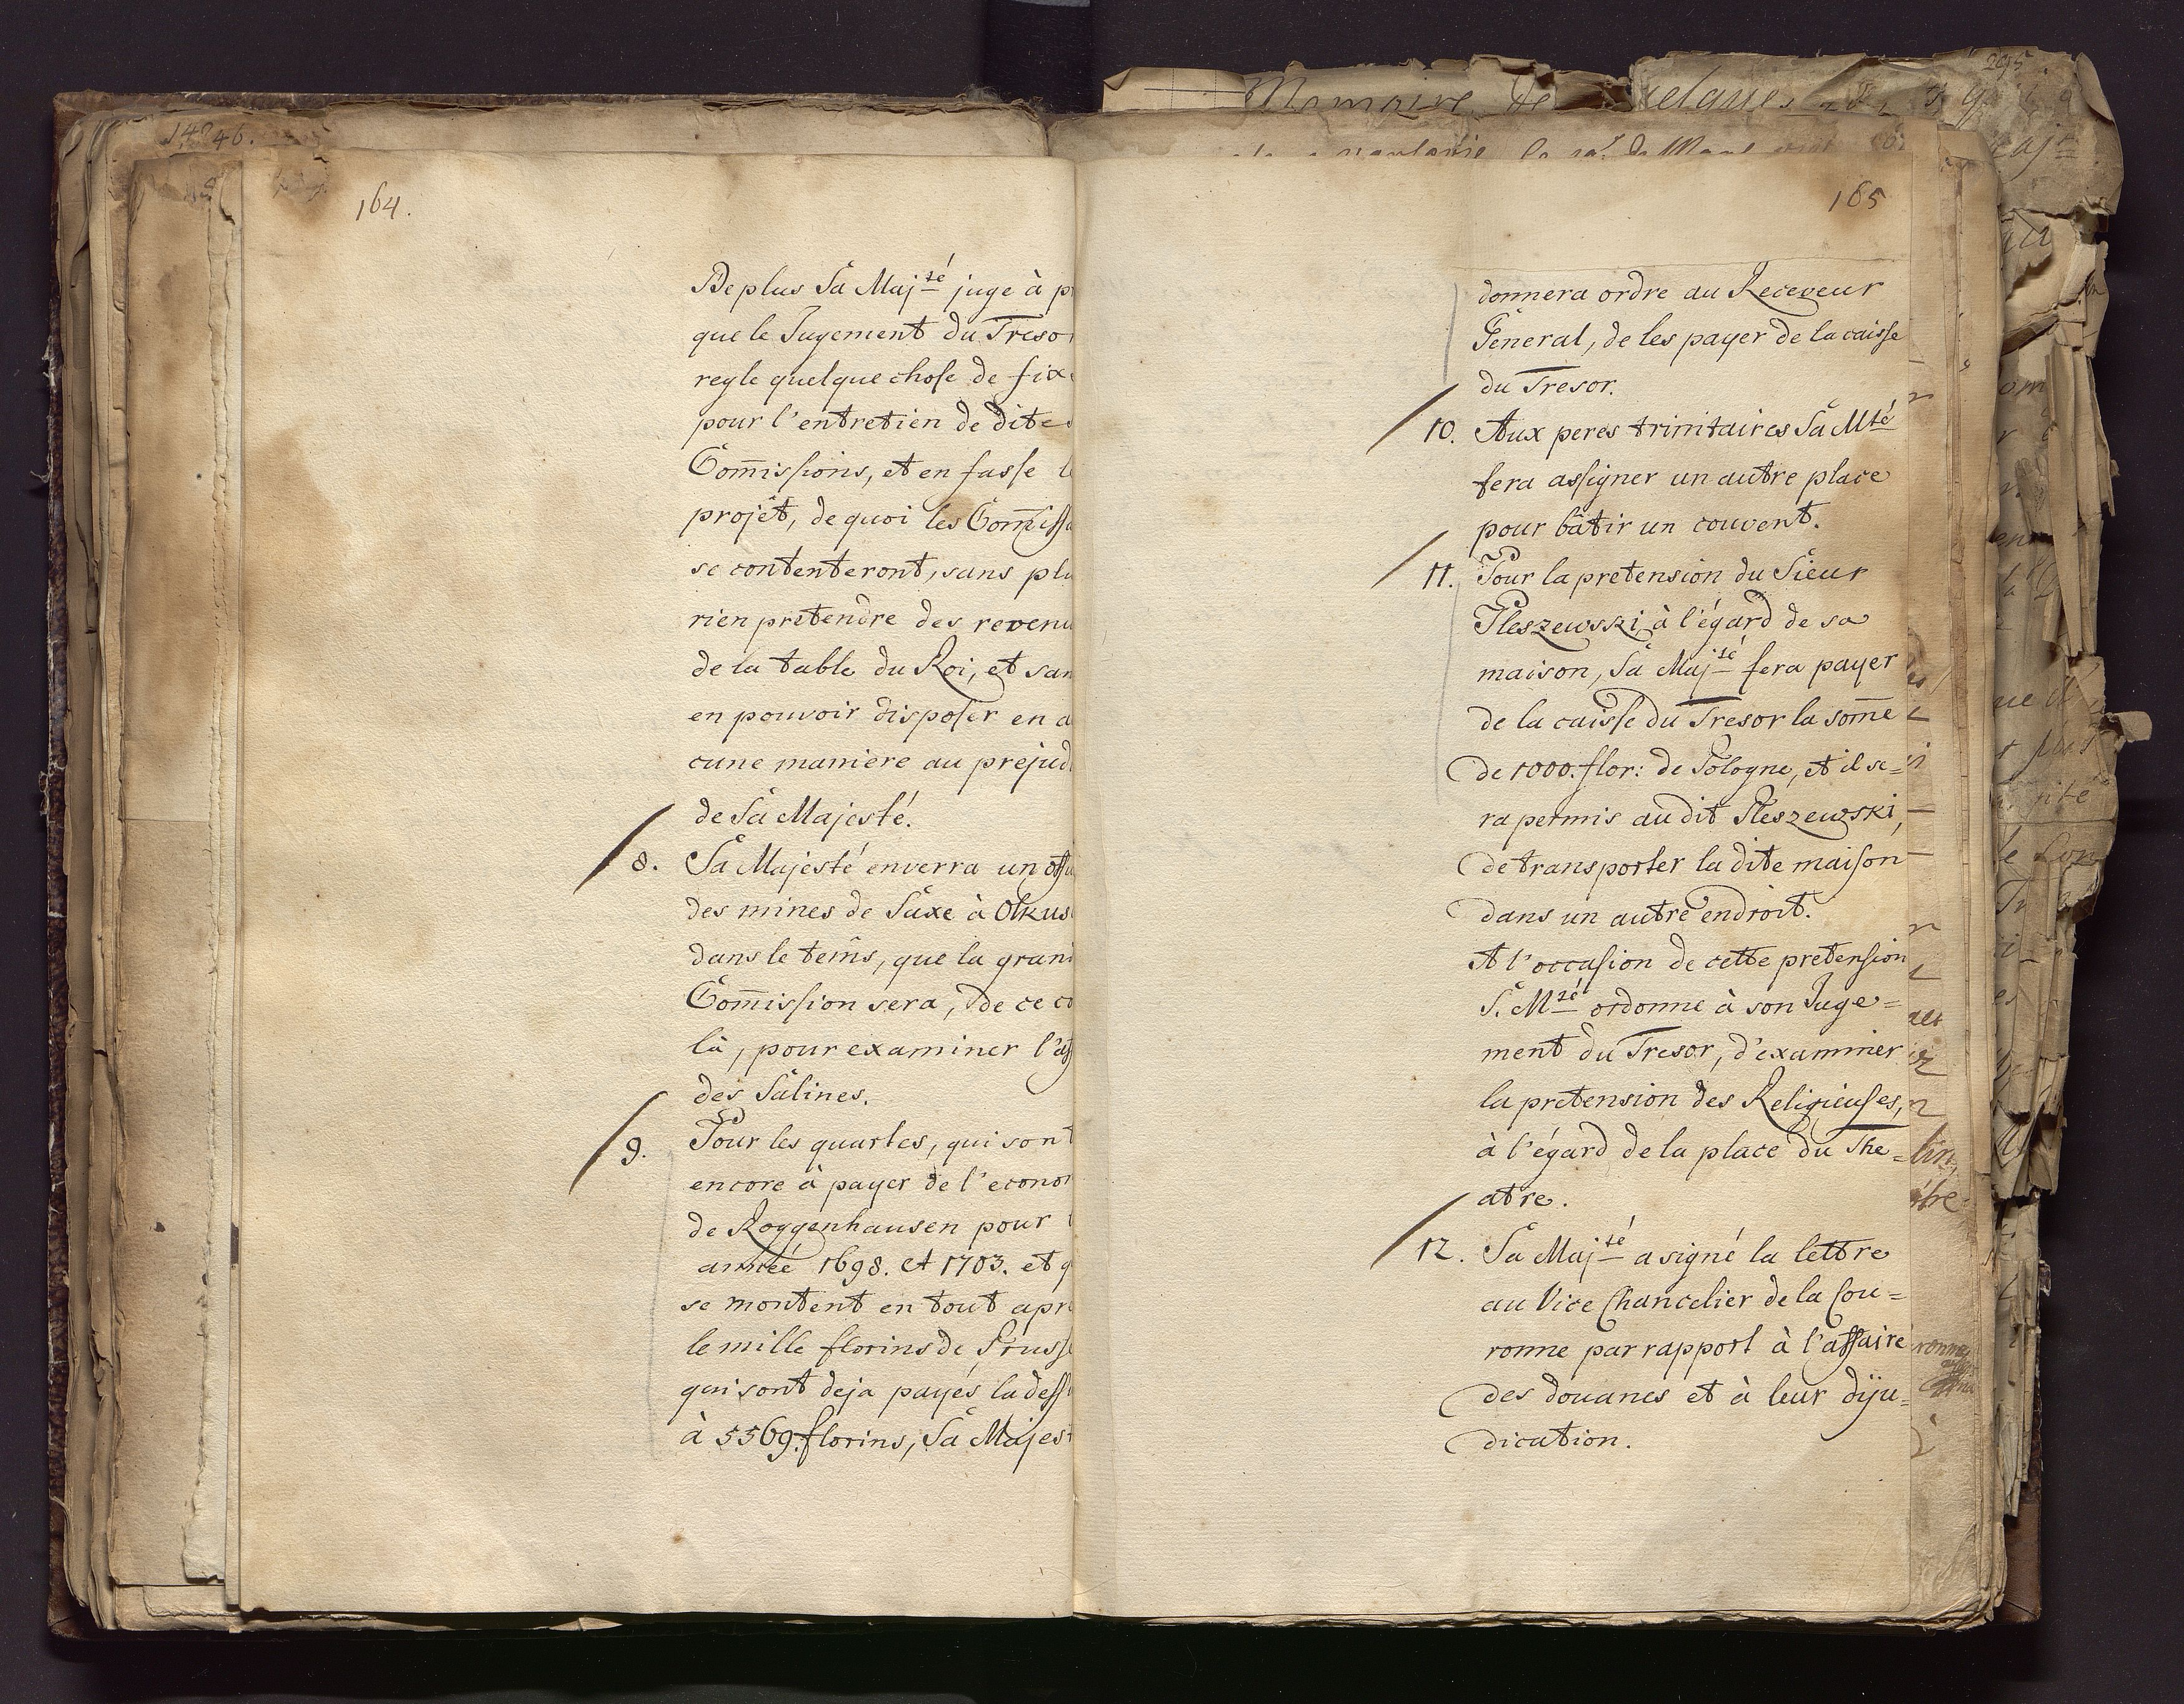 164.
De plus Sa Maj.té juge à p
que le Jugement du Treso
regle quelque chose de fix
pour l'entretien de dites
Com̄issions, et en fasse l
projêt, de quoi les Com̄iss
se contenteront, sans plu
rien pretendre des revenu
de la table du Roi, et san
en pouvoir disposer en a
cune maniere au prejud
de Sa Majesté.
8. Sa Majesté enverra un offi
des mines de Saxe à Olkus
dans le tem̄s, que la gran
Com̄ission sera, de ce co
là, pour examiner l'aff
des Salines.
9. Pour les quartes, qui sont
encore à payer de l'econo
de Roggenhausen pour
année 1698. et 1703. et q
se montent en tout apr
le mille florins de Pruss
qui sont deja payés la dess
à 5569. florins, Sa Majes
165
donnera ordre au Receveur
General, de les payer de la caisse
du Tresor.
10. Aux peres trinitaires Sa Mté
fera assigner un autre place
pour bâtir un couvent.
11. Pour la pretension du Sieur
Pleszewski, à l'égard de sa
maison, Sa Maj.té fera payer
de la caisse du Tresor la som̄e
de 1000. flor: de Pologne, et il se=
ra permis au dit Pleszewski,
de transporter la dite maison
dans un autre endroit.
A l'occasion de cette pretension
S. Mté ordonne à son Juge=
ment du Tresor, d'examiner
la pretension des Religieuses,
à l'égard de la place du The=
atre.
12. Sa Maj.té a signé la lettre
au Vice Chancelier de la Cou=
ronne par rapport à l'affaire
des douanes et à leur diju=
dication.